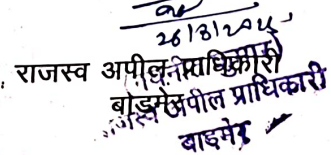 26/8/2025
राजस्व अपील प्राधिकारी
बाड़मेर
राजस्व अपील प्राधिकारी
बाड़मेर